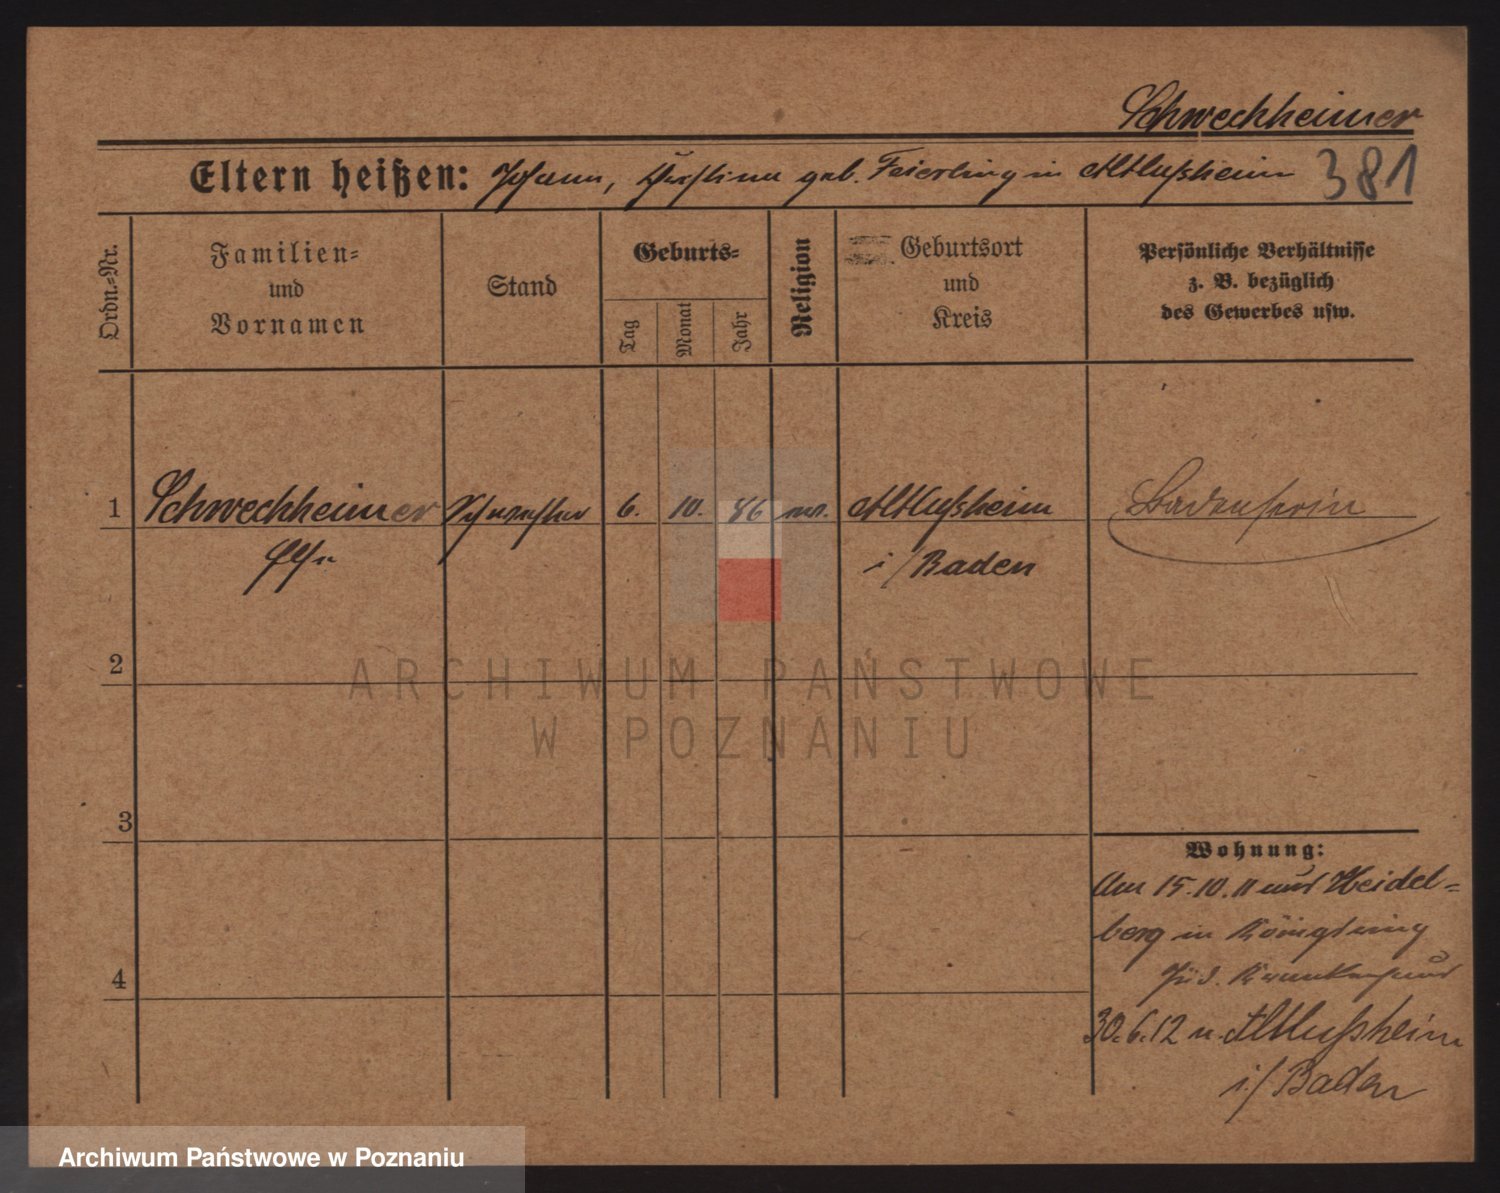 Schwechheimer
Eltern heißen: Johann, Christina geb. Feierling in Altlußheim 381
Ordn.-Nr.
Familien-
und
Vornamen
Stand
Geburts-
Tag
Monat
Jahr
Religion
Geburtsort
und
Kreis
Persönliche Verhältnisse
z. B. bezüglich
des Gewerbes usw.
1 Schwechheimer Schwester 6. 10. 86 ev. Altlußheim Badenserin
Else
i/Baden
2
3
4
Wohnung:
Am 15.10.11 aus Heidel=
berg in Königsring
Jüd. Krankenhaus
30.6.12 n. Altlußheim
i/Baden
ARCHIWUM PAŃSTWOWE
W POZNANIU
Archiwum Państwowe w Poznaniu